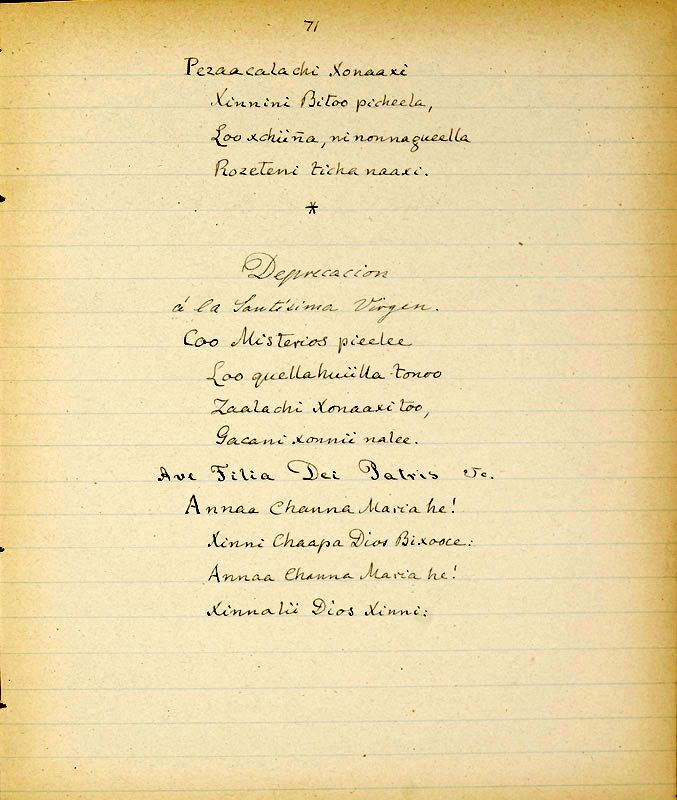 71
Pezaacalachi Xonaaxi
Xinnini Bitoo picheela,
Loo xchiiña, ni nonnagueella
Rozeteni ticha naaxi.
*
Deprecacion
á la Santísima Virgen.
Coo Misterios pieelee
Loo quellahuiilla tonoo
Zaalachi Xonaaxi too,
Gacani xonnii nalee.
Ave Filia Dei Patris &c.
Annaa Channa Maria he!
Xinni Chaapa Dios Bixooce:
Annaa Channa Maria he!
Xinnalii Dios Xinni: